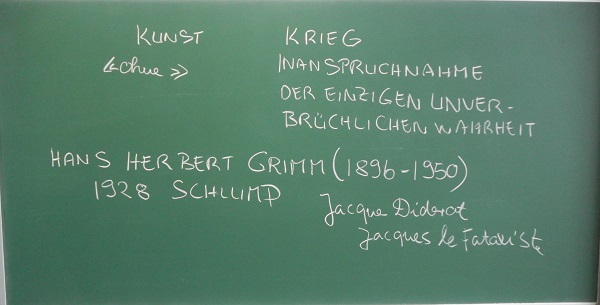 KUNST
«ohne»
KRIEG
INANSPRUCHNAHME
DER EINZIGEN UNVER-
BRÜCHLICHEN WAHRHEIT
HANS HERBERT GRIMM (1896-1950)
1928 SCHLUMP
Jacque Diderot
Jacques le Fataliste